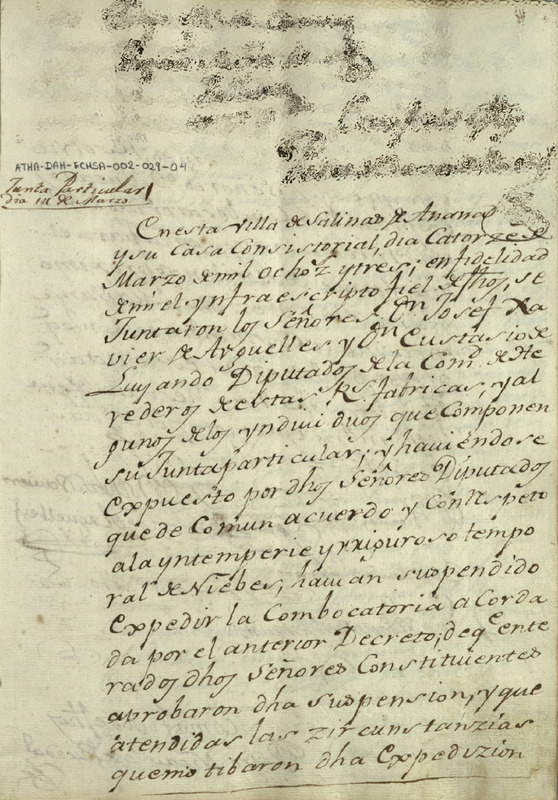 ATHA-DAH-FCHSA-002-029-04
Junta Particular
dia 14 de Marzo
Enesta villa de Salinas de Anana
y su Casa Consistorial, dia Catorze de
Marzo de mil ochoz. ytres; en fidelidad
de mi el ynfraescripto fiel de fhos, se
Juntaron los Señores Dn Josef Xa
vier de Arguelles y Dn Eustasio de
Luyando Diputados de la Comd. de He
rederos de estas Rs. fabricas, y al
gunos delos yndividuos que Componen
su Junta particular; y haviendose
expuesto por dhos Señores Diputados
que de Comun acuerdo y Con respeto
ala yntemperie y rriguroso tempo
ral de Niebes, havian suspendido
expedir la Combocatoria acorda
da por el anterior Decreto, de qe ente
rados dhos Señores Constituientes
aprobaron dha suspension, y que
atendidas las zircunstanzias
que motibaron dha Expedizion